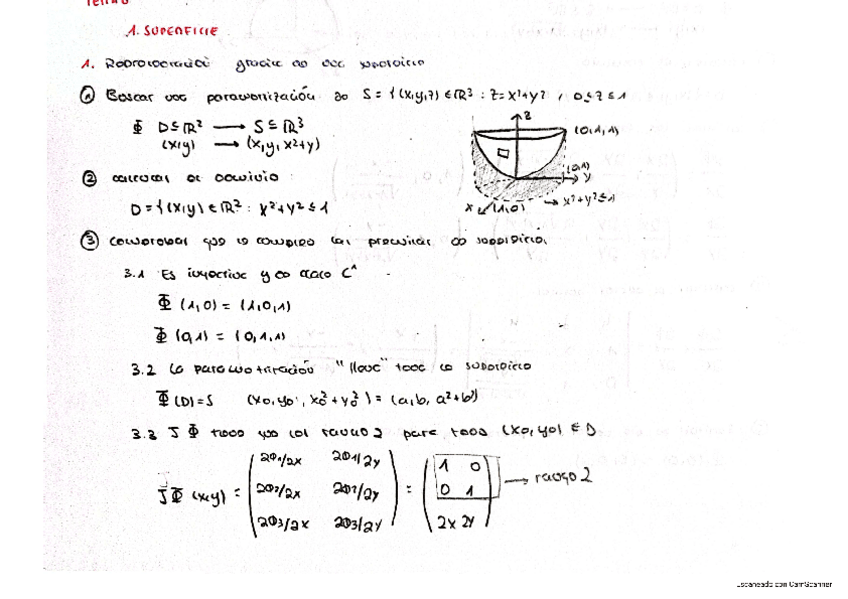 1. SUPERFICIE
1. Representación gráfica de una superficie
① Buscar una parametrización de S = {(x,y,z) ∈ ℝ³ : z = x²+y², 0 ≤ z ≤ 1
Φ D ⊆ ℝ² → S ⊆ ℝ³
(x,y) → (x, y, x²+y)
z
(0,1,1)
(0,1)
y
x (1,0) → x²+y² ≤ 1
② calcular el dominio
D = {(x,y) ∈ ℝ² : x²+y² ≤ 1
③ comprobar que se cumplen las de superficie.
3.1 Es inyectiva y de clase C¹
Φ (1,0) = (1,0,1)
Φ (0,1) = (0,1,1)
3.2 La parametrización "llena" toda la superficie
Φ(D)=S (x₀, y₀, x₀²+y₀²) = (a, b, a²+b²)
3.3 JΦ tiene que ser rango 2 para todo (x₀, y₀) ∈ D
∂Φ1/∂x ∂Φ1/∂y 1 0
JΦ (x,y) = ∂Φ2/∂x ∂Φ2/∂y = 0 1 → rango 2
∂Φ3/∂x ∂Φ3/∂y 2x 2y
Escaneado con CamScanner